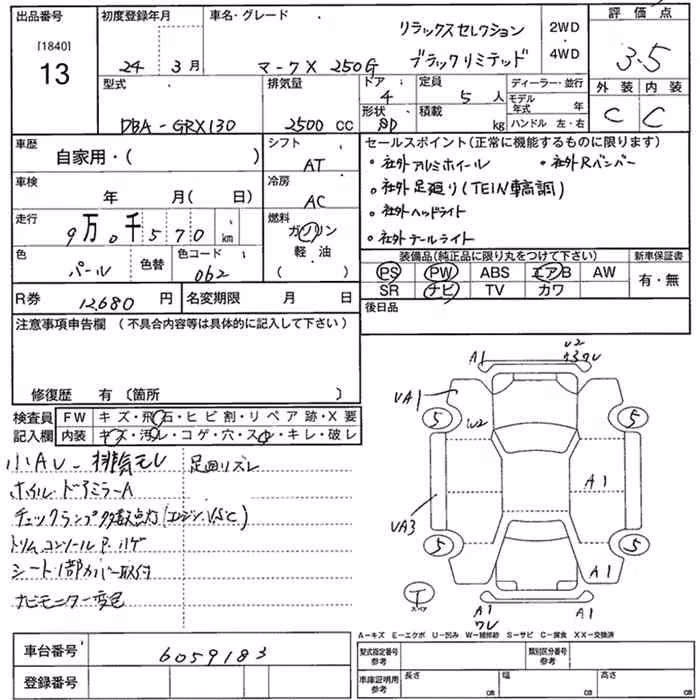 出品番号 初度登録年月 車名・グレード 評価点
[1840] 13 24 年 3月 マークX 250G リラックスセレクション ブラックリミテッド 2WD 4WD 3.5
外装 内装
C C
型式 排気量 ドア 定員 ディーラー・並行
DBA-GRX130 2500 CC 4 5 人 モデル年式 年
形状 積載 kg ハンドル 左・右
車歴 シフト セールスポイント(正常に機能するものに限ります)
自家用・( ) AT ・社外アルミホイール ・社外Rバンパー
車検 冷房 ・社外足廻り(TEIN車高調)
年 月( 日) AC ・社外ヘッドライト
走行 燃料 ・社外テールライト
9万0千570 km ガソリン
色 色替 色コード 軽油
パール 062 ( )
装備品(純正品に限り丸をつけて下さい) 新車保証書
PS PW ABS エアB AW 有・無
SR ナビ TV カワ
R券 12,680 円 名変期限 月 日 後日品
注意事項申告欄 (不具合内容等は具体的に記入して下さい)
修復歴 有 (箇所 )
検査員 FW キズ・飛石・ヒビ割・リペア跡・X要
記入欄 内装 キズ・汚レ・コゲ・穴・スレ・キレ・破レ
小AU 排気モレ 足回リズレ
ホイル、ドアミラーA
チェックランプ多数点灯(エンジン、VSC)
トリム、コンソールP、ハゲ
シート1部カバー取付
ナビモニター変色
A1 U2
UA1
5 5
W2
A1
UA3
5 5
A1
T スペア A1 A1
A-キズ E-エクボ U-凹み W-補修跡 S-サビ C-腐食 XX-交換済
車台番号 6059183 型式指定番号 参考 類別区分番号 参考
登録番号 車庫証明用 参考 長さ cm 幅 cm 高さ cm